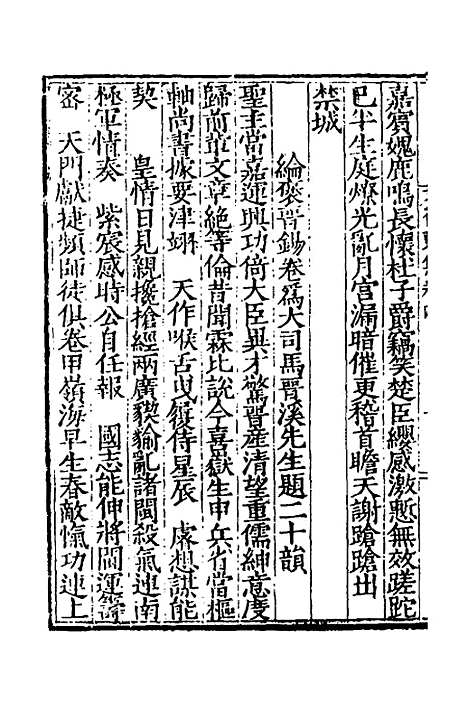 嘉賓媿鹿鳴長懷杜子爵竊笑楚臣纓感激慙無效蹉跎
已半生庭燎光亂月宮漏暗催更稽首瞻天謝蹌蹌出
禁城
綸褒晉錫卷爲大司馬晉溪先生題二十韻
聖主當嘉運興功倚大臣與才驚晉産清望重儒紳意度
歸前軰文章絶等倫昔聞霖比說今喜嶽生申兵省當樞
軸尚書據要津翊 天作喉舌曳履侍星辰 處想謀能
契 皇情日見親攙搶經兩廣猰㺄亂諸閩殺氣連南
極軍情奏 紫宸感時公自任報 國志能伸將閫運籌
密 天門獻捷頻師徒俱卷甲嶺海早生春敵愾功連上